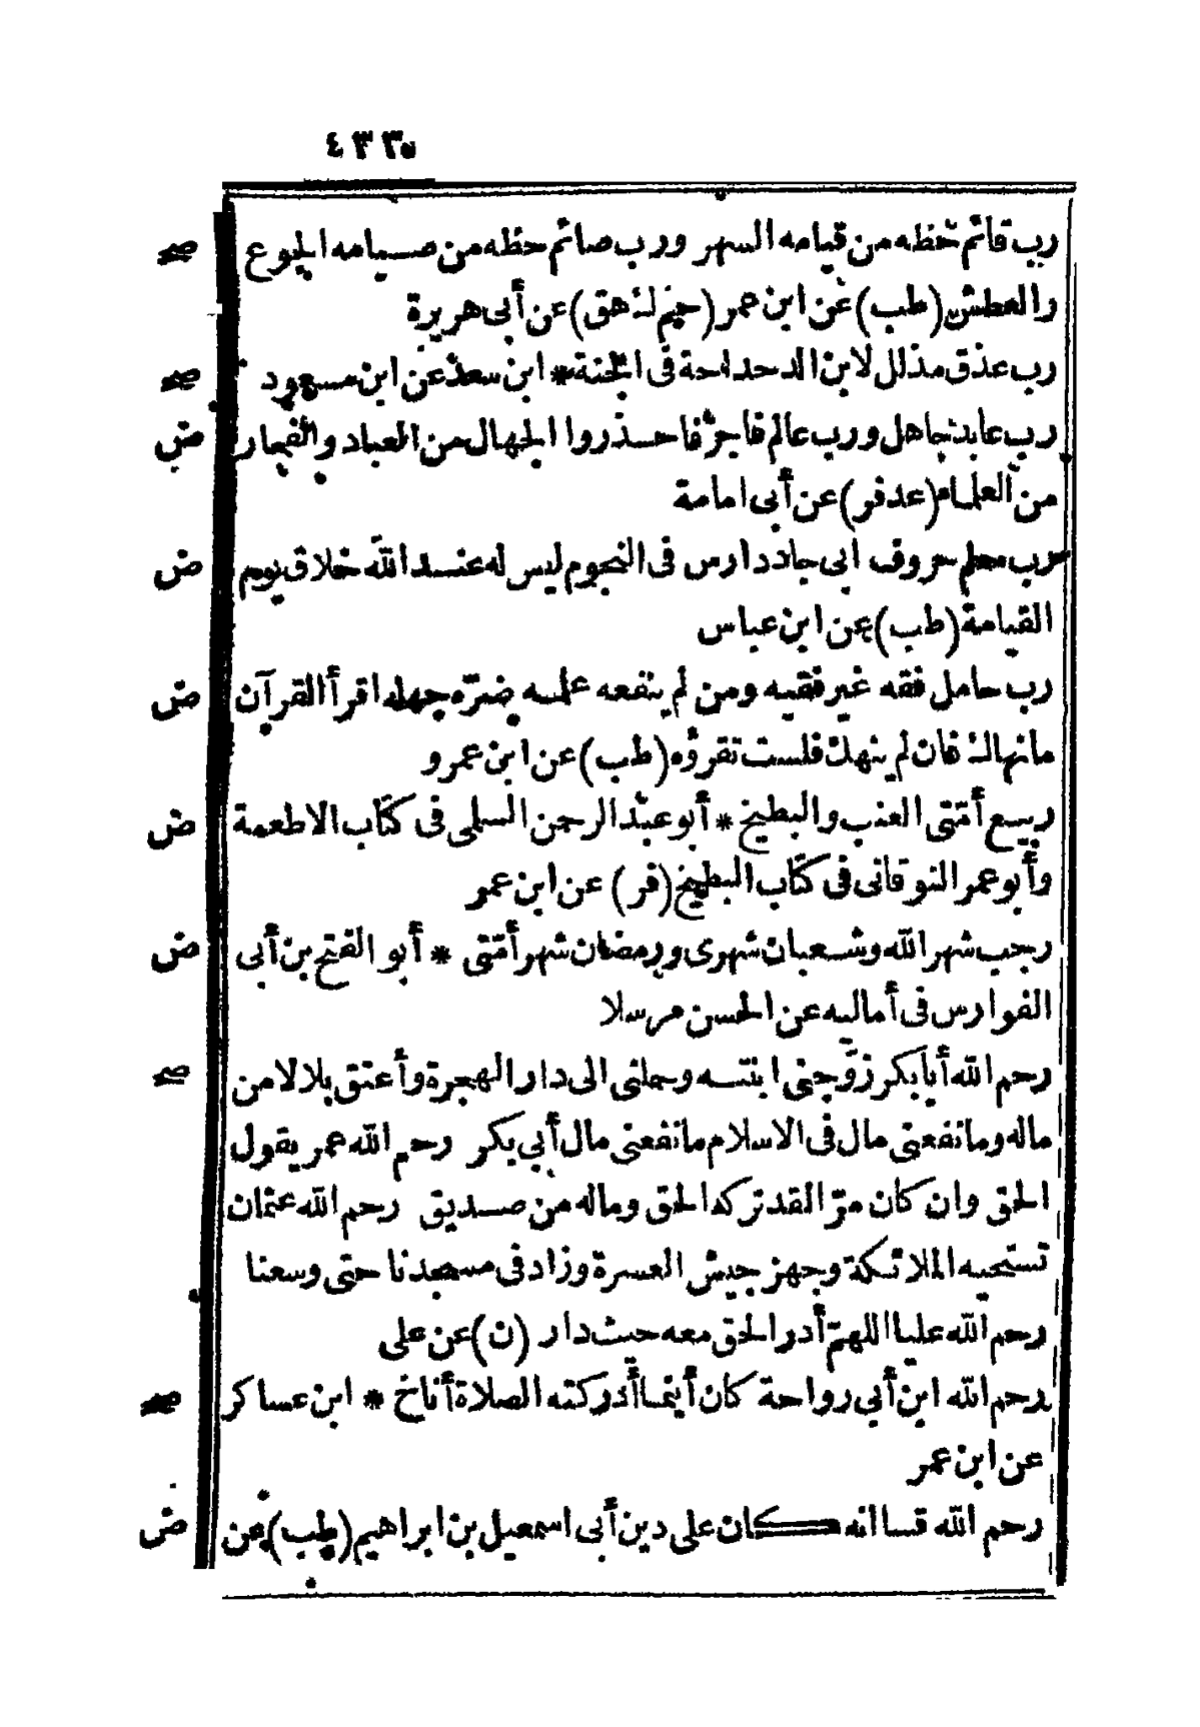 ٤٣٣
رب قائم حظه من قيامه السهر ورب صائم حظه من صيامه الجوع صح
والعطش (طب) عن ابن عمر (حم ك هق) عن أبى هريرة
رب عذق مذلل لابن الدحداحة فى الجنة * ابن سعد عن ابن مسعود صح
رب عابد جاهل ورب عالم فاجر فاحذروا الجهال من العباد والفجار ض
من العلماء (عد فر) عن أبى امامة
رب معلم حروف ابى جاد دارس فى النجوم ليس له عند الله خلاق يوم ض
القيامة (طب) عن ابن عباس
رب حامل فقه غير فقيه ومن لم ينفعه علمه ضرّه جهله اقرأ القرآن ض
مانهاك فان لم ينهك فلست تقرؤه (طب) عن ابن عمرو
ربيع أمّتى العنب والبطيخ * أبو عبد الرحمن السلمى فى كتاب الاطعمة ض
وأبو عمر النوقانى فى كتاب البطيخ (فر) عن ابن عمر
رجب شهر الله وشعبان شهرى ورمضان شهر أمّتى * أبو الفتح بن أبى ض
الفوارس فى أماليه عن الحسن مرسلا
رحم الله أبا بكر زوّجنى ابنته وحملنى الى دار الهجرة وأعتق بلالا من صح
ماله وما نفعنى مال فى الاسلام ما نفعنى مال أبي بكر رحم الله عمر يقول
الحق وان كان مرّا لقد تركه الحق وماله من صديق رحم الله عثمان
تستحييه الملائكة وجهز جيش العسرة وزاد فى مسجدنا حتى وسعنا
رحم الله عليا اللهمّ أدر الحق معه حيث دار (ن) عن على
رحم الله ابن أبي رواحة كان أينما أدركته الصلاة أناخ * ابن عساكر صح
عن ابن عمر
رحم الله قسا انه كان على دين أبى اسمعيل بن ابراهيم (طب) عن ض